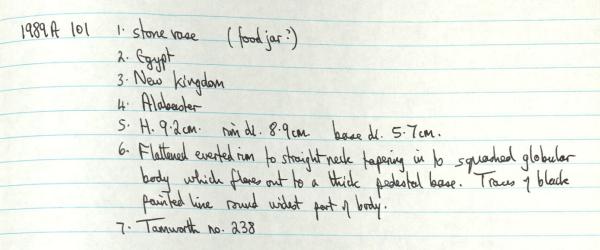 1989A 101 1. stone vase (food jar?)
2. Egypt
3. New Kingdom
4. Alabaster
5. H. 9.2cm. rim di. 8.9cm base di. 5.7cm.
6. Flattened everted rim to straight neck tapering in to squashed globular
body which flares out to a thick pedestal base. Traces of black
painted line round widest part of body.
7. Tamworth no. 238